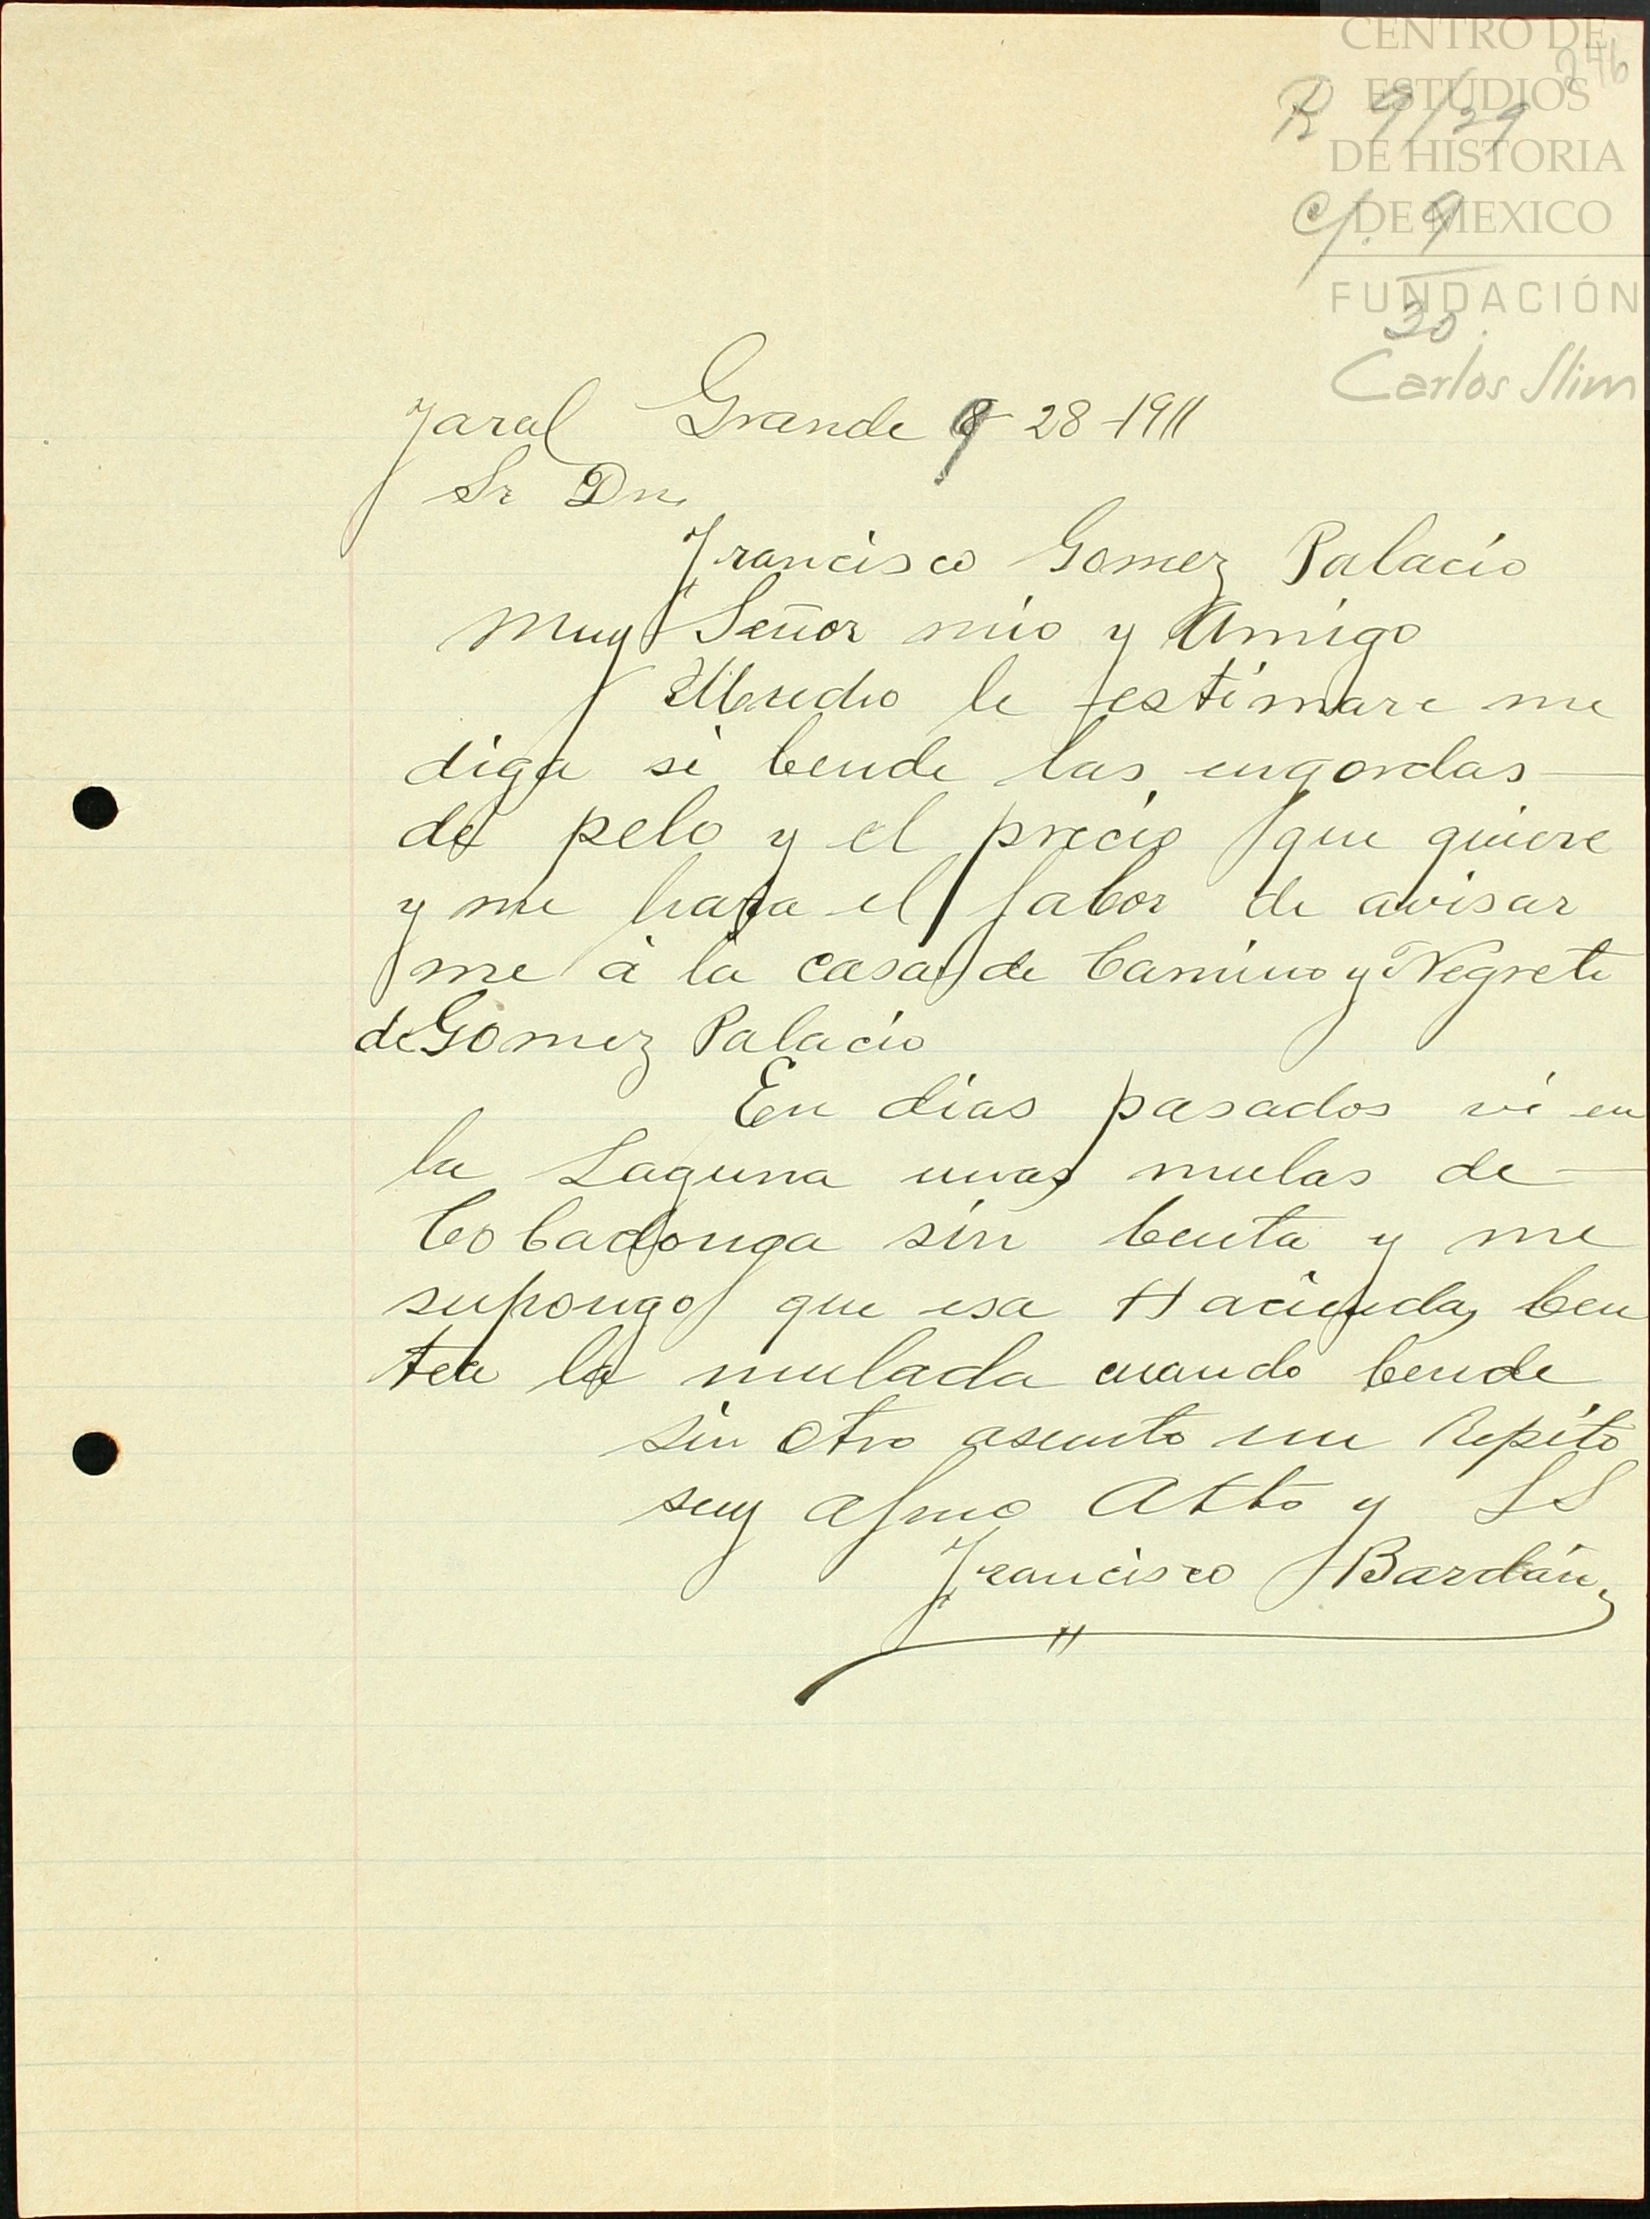 CENTRO DE
ESTUDIOS
DE HISTORIA
DE MEXICO
FUNDACIÓN
Carlos Slim
R 9/29
c/. 9
30.
Jaral Grande 9 28-1911
Sr Dn
Francisco Gomez Palacio
Muy Señor mio y Amigo
Mucho le estimare me
diga si bende las engordas
de pelo y el precio que quiere
y me hara el fabor de avisar
me á la casa de Camino y Negrete
de Gomez Palacio
En dias pasados vi en
la Laguna unas mulas de
Cobadonga sin benta y me
supongo que esa Hacienda ben
tea la mulada cuando bende
sin otro asunto me Repito
suy afmo Atto y SS
Francisco Bardán